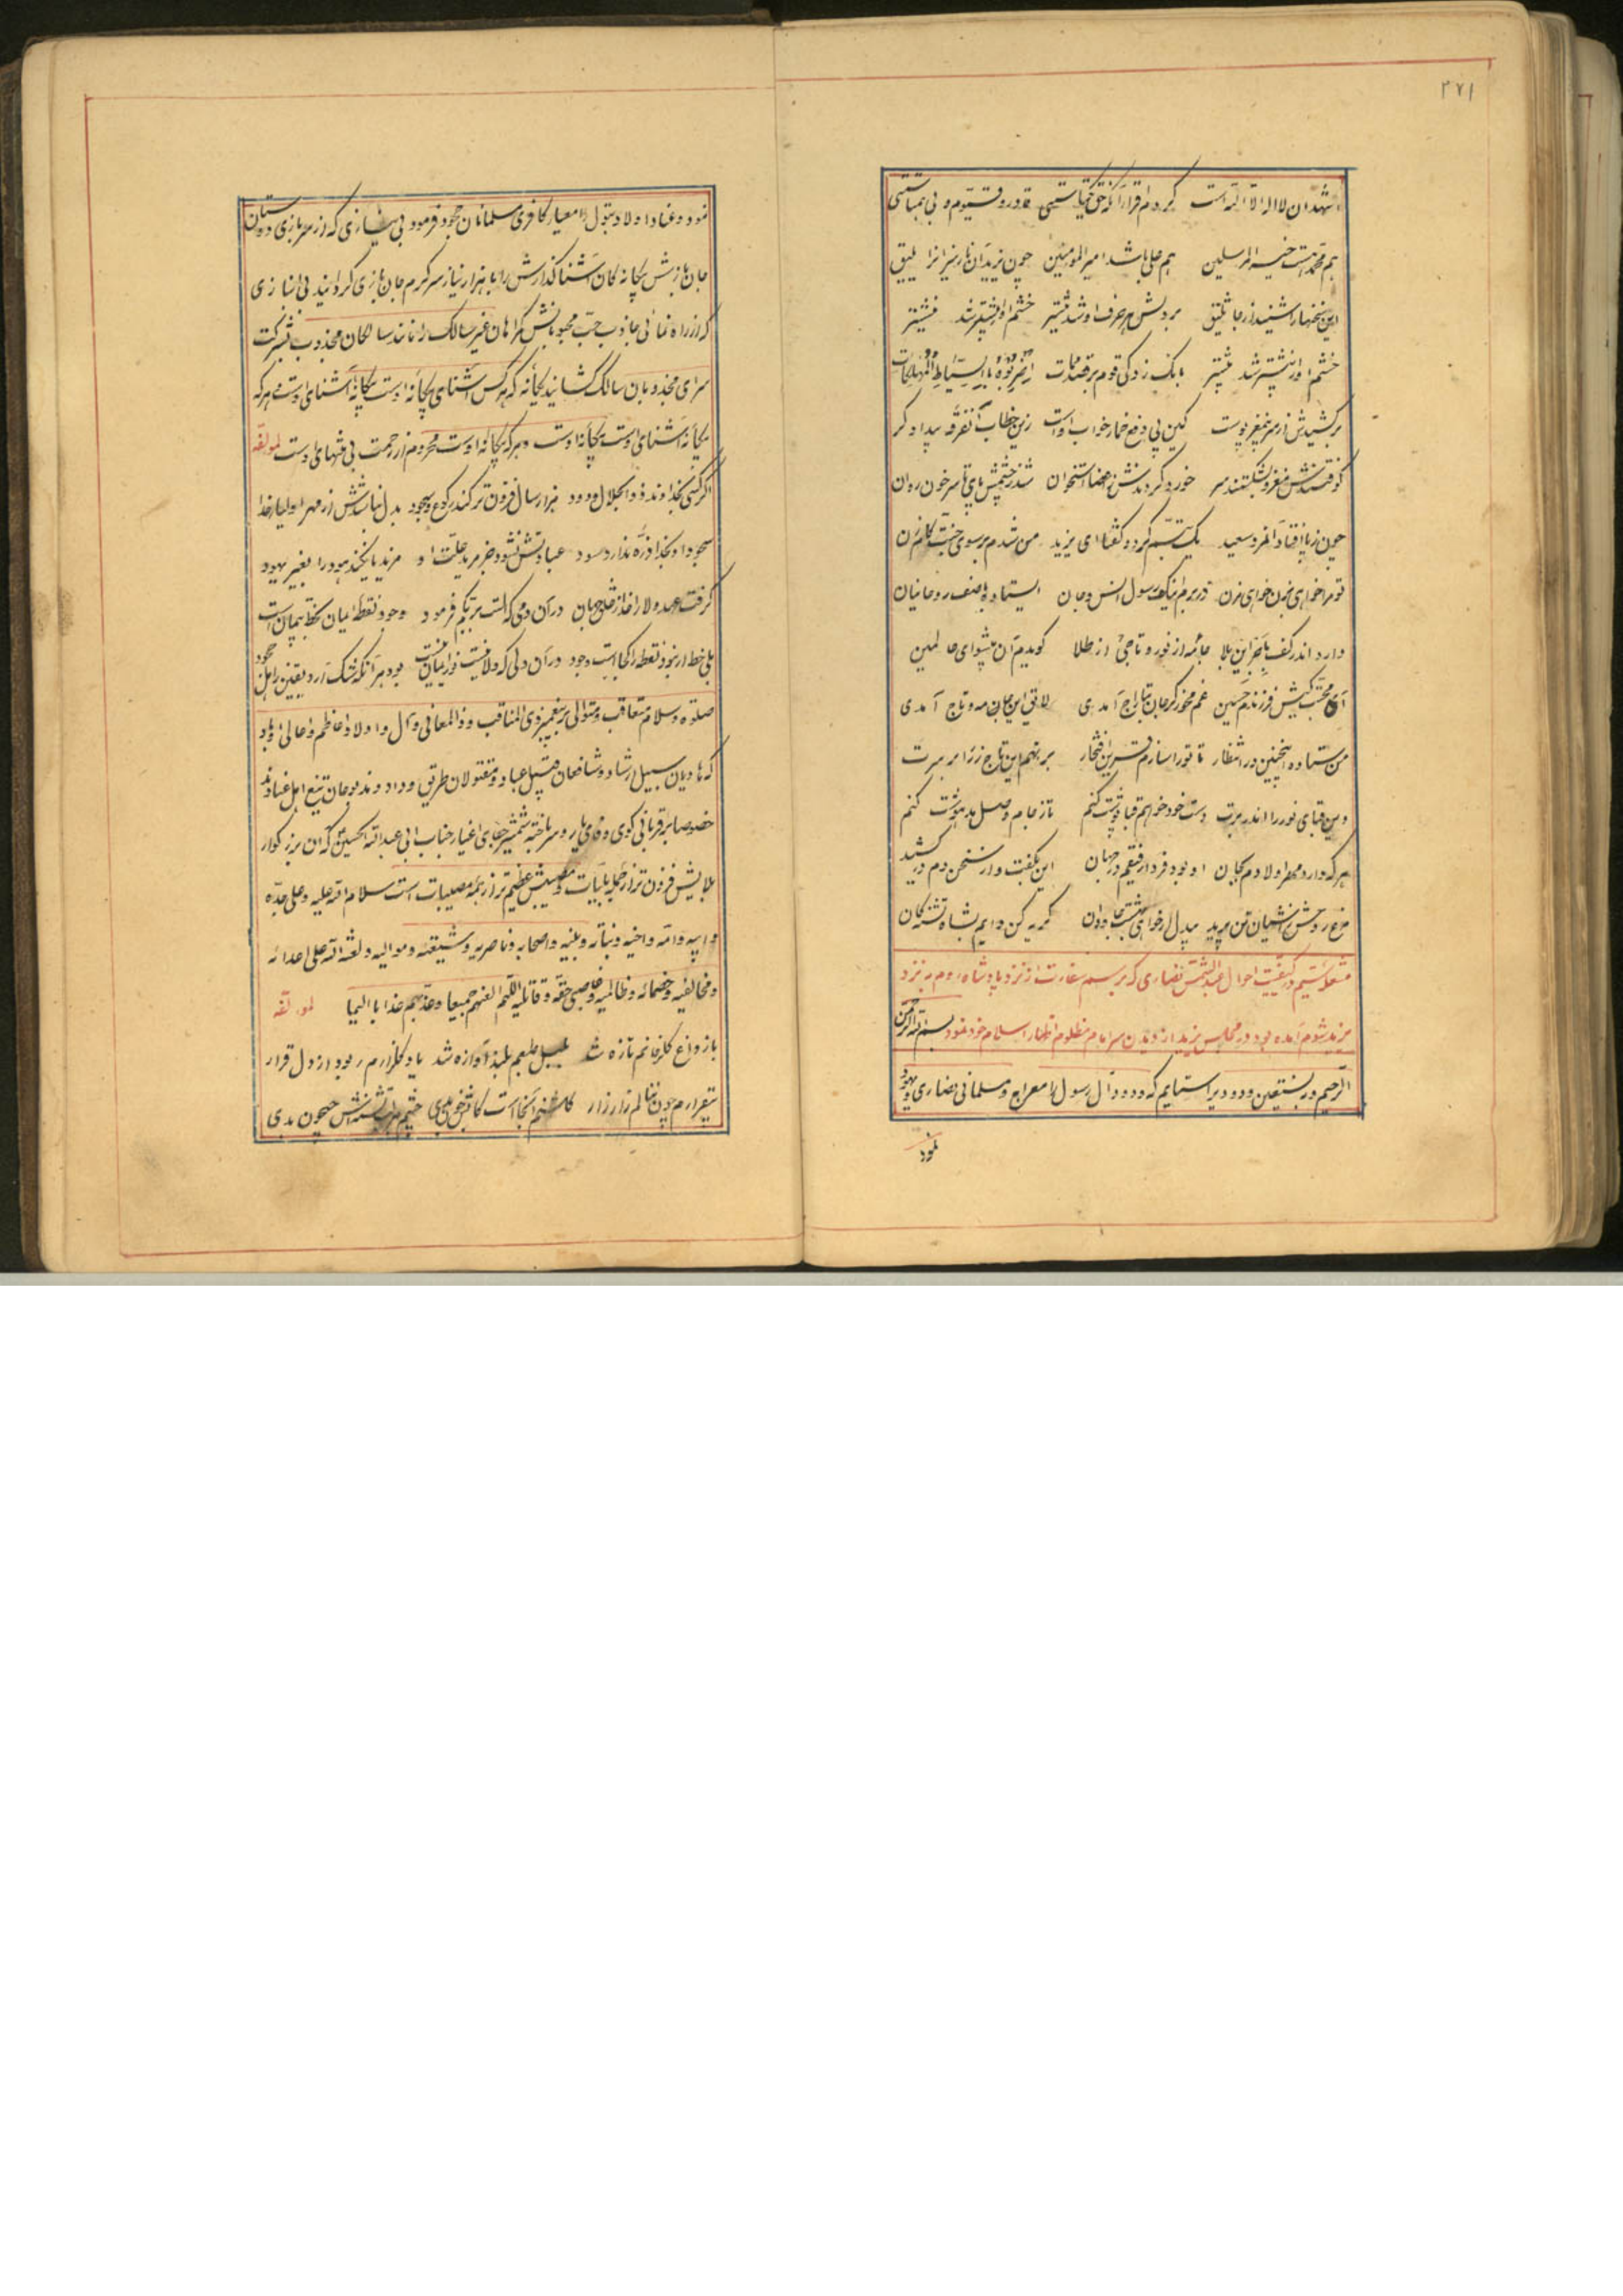 ۳۷۱
اشهد ان لا اله الا الله است کردم اقرار آنکه حق یکتاستی قادر و قیوم و بی همتاستی
هم محمد هست ختم المرسلین هم علی باشد امیر المومنین چون یزید آن نارنیرانرا یلیق
این سخنهارا شنید از جاثلیق بردلش هر حرف او شد نیشتر خشم او از بیشتر شد بیشتر
خشم او از بیشتر شد بیشتر بانک زد کی قوم برقصد ممات اضربوه بالسیاط المهلکات
برکشیدش از سر پوست کین پی دفع خمار خواب اوست زین خطاب آنفرقه بیدادگر
کوفتندش مغز و بشکستند سر خورد کردندش ز اعضا استخوان شد ز چشمش پای تا سر خون روان
چون ز پا افتاد آنمرد سعید یک تبسم کرد و گفتا ای یزید من شدم بر سوی جنت کامزن
تو مرا خواهی بزن خواهی مزن در برم اینک رسول انس و جان ایستاده با صف روحانیان
دارد اندر کف بآخر این بلا جامه از نور و تاجی از طلا گویدم آن پیشوای عالمین
ای محبت کیش فرزندم حسین غم مخور کر جان بتاراج آمدی لایق این جامه و تاج آمدی
من ستاده اینچنین در انتظار تا تورا سازم قرین افتخار برنهم این تاج زر را بر سرت
وین قبای نور را اندر برت دست خود خواهم قبا پوشت کنم تاز جام وصل مدهوشت کنم
هرکه دارد مهر اولادم بجان او بود فردا رفیقم در جهان این بگفت و از سخن دم در کشید
مرغ روحش ز آشیان تن پرید بیدل ار خواهی بهشت جاودان گریه کن دایم بشاه تشنگان
مشتعل سیم در کیفیت احوال عبدالشمس نصاری که برسم سفارت از نزد پادشاه روم به نزد
یزید شوم آمده بود و در مجلس یزید از دیدن سر امام مظلوم اظهار اسلام خود نمود بسم الله الرحمن
الرحیم و به نستعین ودودیرا ستایم که وداد آل رسول را معراج مسلمانی نصاری و یهود
نمود
نمود و عناد اولاد بتول را معیار کافری مسلمانان جحود فرمود بی نیازی که از سر بازی دوستان
جان بازش بیگانه کان آشنا گذارش را با هزار نیاز سرگرم جان بازی گردانید بی انبازی
که از راه نمائی جاذب حب محبوبانش گمراهان غیر سالک را مانند سالکان مجذوب بشرکت
سرای مجذوبان سالک کشانید یگانه که هرکس آشنای بیگانه اوست بیگانه آشنای اوست هرکه
بیگانه آشنای اوست بیگانه اوست و هرکه بیگانه اوست محروم از رحمت بی منتهای اوست لمولفه
اگر کسی بخداوند ذوالجلال ودود هزار سال فزون تر کند رکوع و سجود بدل نباشدش از مهر اولیاء خدا
سجود او بخدا ذره ندارد سود عبادتش نشود جز مزید علت او مزید نا بخشد بود را بغیر یهود
گرفت عهد ولا را خدا ز خلق جهان در آن دمی که الست بربکم فرمود وجود نقطه ایمان بخط پیمان است
بلی خط ار نبود نقطه را کجاست وجود در آن دلی که ولا نیست نور ایمان نیست بود هر آنکه شک آرد یقین ز اهل جحود
صلوة و سلام متعاقب و متوالی بر پیغمبر ذی المناقب و ذوالمعانی و آل و اولاد اعاظم و اعالی او باد
که هادیان سبیل رشاد و شافعان عباد و مقتولان طریق وداد و مذبوحان تیغ اهل عنادند
خصوصا بر قربانی کوی وفای یار و سر باخته شمشیر جفای اغیار جناب ابی عبدالله الحسین که آن بزرگوار
بلایش فزون تر از جمله بلیات و مصیبتش عظیم تر از همه مصیبات است سلام الله علیه و علی جده
و ابیه و امه و اخیه و بناته و بنیه و اصحابه و ناصریه و شیعته و موالیه و لعنة الله علی اعدائه
و مخالفیه و خصمائه و ظالمیه و غاصبی حقه و قاتلیه اللهم العنهم جمیعا و عذبهم عذابا الیما لمولفه
باز داغ کلرخانم تازه شد بلبل طبعم بلند آوازه شد یاد گلزارم ربود از دل قرار
بیقرارم چون ننالم زار زار گلشنم آنجاست کابش خون بدی چشم هر لب تشنه اش جیحون بدی